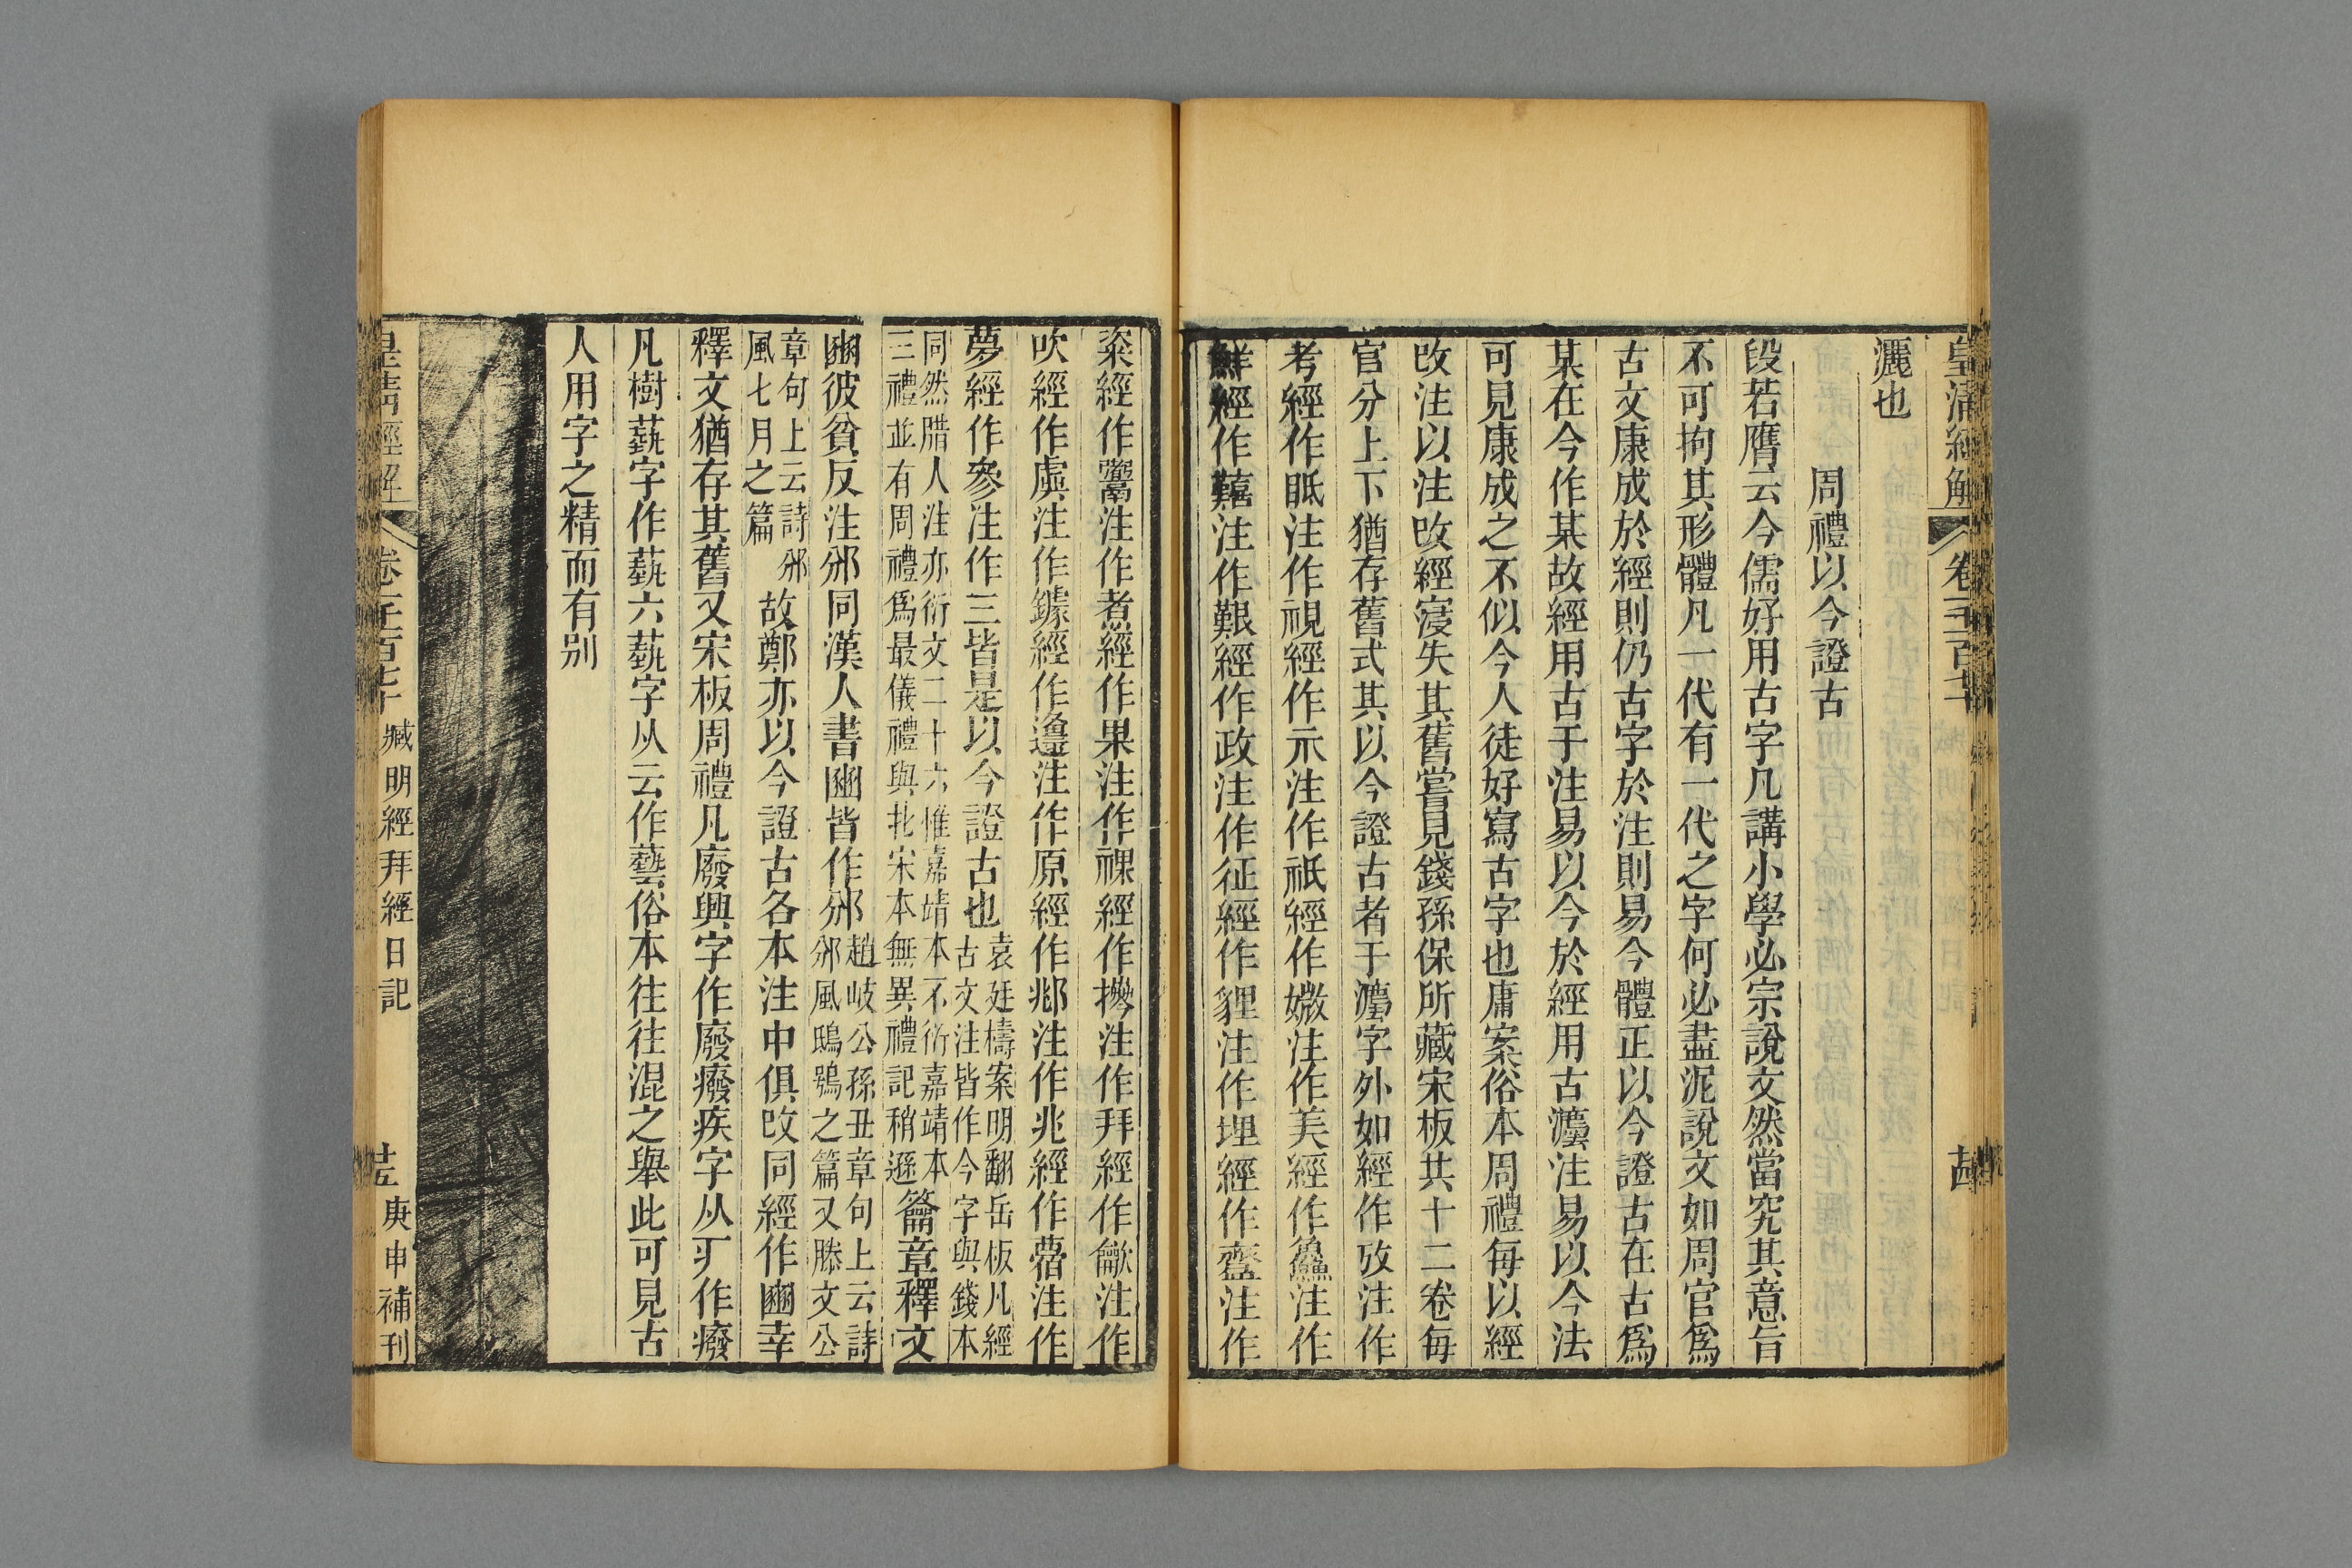 皇清經解
卷一千一百七十
灑也
周禮以今證古
段若膺云今儒好用古字凡講小學必宗說文然當究其意旨
不可拘其形體凡一代有一代之字何必盡泥說文如周官爲
古文康成於經則仍古字於注則易今體正以今證古在古爲
某在今作某故經用古于注易以今於經用古灋注易以今法
可見康成之不似今人徒好寫古字也庸案俗本周禮每以經
改注以注改經寖失其舊嘗見錢孫保所藏宋板共十二卷每
官分上下猶存舊式其以今證古者于灋字外如經作攷注作
考經作眡注作視經作示注作祇經作媺注作美經作鱻注作
鮮經作囏注作艱經作政注作征經作貍注作埋經作齍注作
粢經作鬻注作煮經作果注作祼經作𢷎注作拜經作龡注作
吹經作虡注作鐻經作邍注作原經作兆注作兆經作薧注作
夢經作參注作三皆是以今證古也袁廷檮案明翻岳板凡經
古文注皆作今字與錢本
同然腊人注亦衍文二十六惟嘉靖本不衍嘉靖本
三禮並有周禮爲最儀禮與北宋本無異禮記稍遜籥章釋文
豳彼貧反注邠同漢人書豳皆作邠趙岐公孫丑章句上云詩
邠風鴟鴞之篇又滕文公
章句上云詩邠
風七月之篇故鄭亦以今證古各本注中俱改同經作豳幸
釋文猶存其舊又宋板周禮凡廢興字作廢癈疾字从疒作癈
凡樹蓺字作蓺六蓺字从云作藝俗本往往混之舉此可見古
人用字之精而有别
皇清經解
卷一千一百七十
臧明經拜經日記
庚申補刊